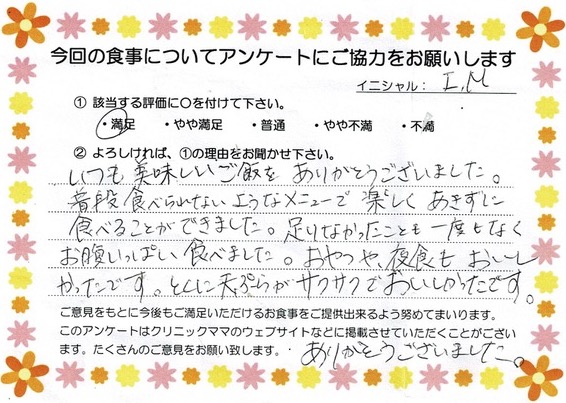 今回の食事についてアンケートにご協力をお願いします
イニシャル： I.M
① 該当する評価に○を付けて下さい。
・満足 ・やや満足 ・普通 ・やや不満 ・不満
② よろしければ、①の理由をお聞かせ下さい。
いつも美味しいご飯を ありがとうございました。
普段食べられないようなメニューで 楽しく あきずに
食べることができました。足りなかったことも一度もなく
お腹いっぱい食べました。おやつや、夜食も おいし
かったです。とくに天ぷらがサクサクでおいしかったです。
ご意見をもとに今後もご満足いただけるお食事をご提供出来るよう努めてまいります。
このアンケートはクリニックママのウェブサイトなどに掲載させていただくことがござい
ます。たくさんのご意見をお願い致します。
ありがとうございました。